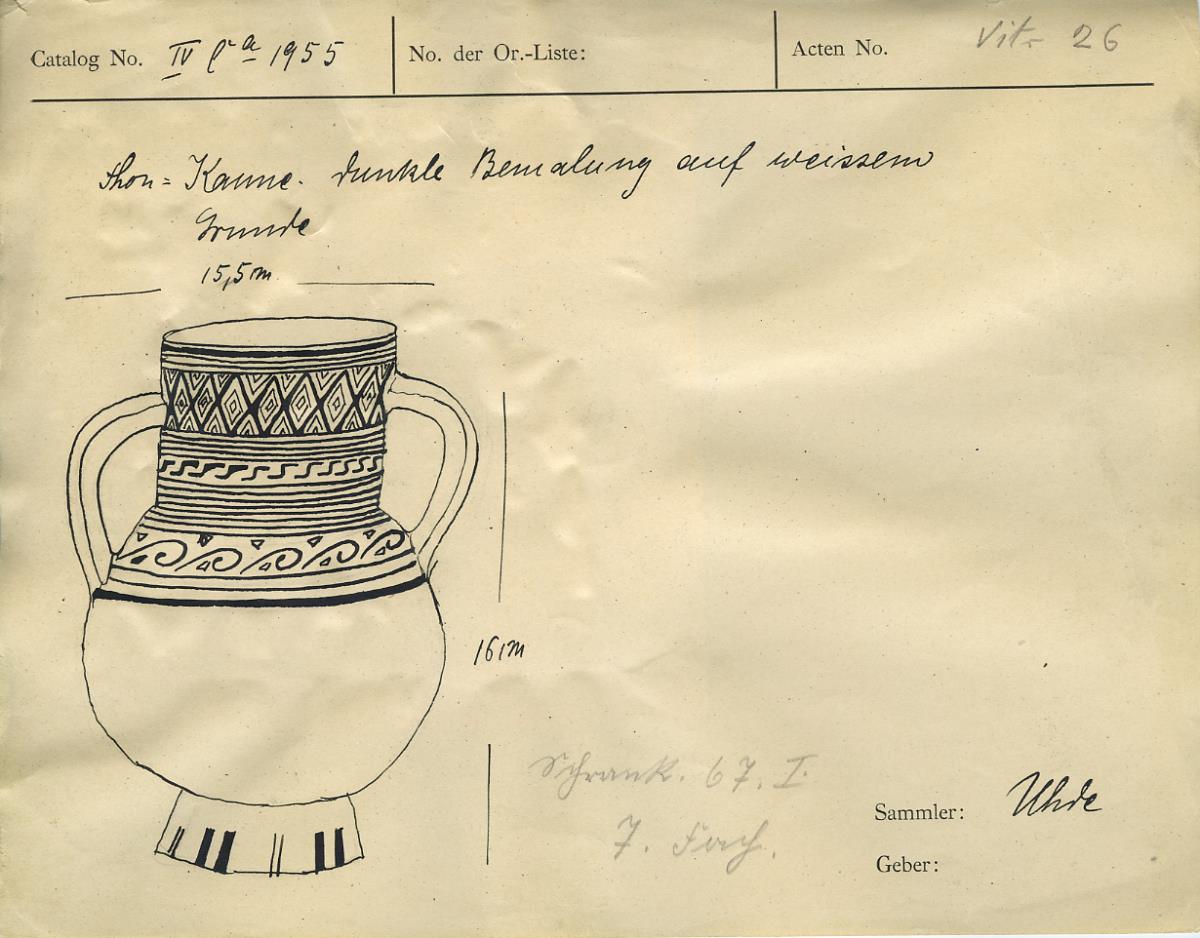 Catalog No. IV Ca 1955
No. der Or.-Liste:
Acten No. Vit. 26
Thon-Kanne. dunkle Bemalung auf weissem
Grunde
15,5 m
16 m
Schrank. 67. I.
7. Fach.
Sammler: Uhde
Geber: